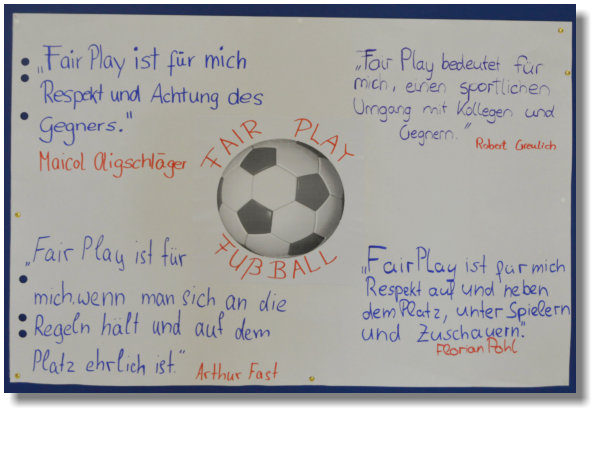 „Fair Play ist für mich
Respekt und Achtung des
Gegners."
Maicol Oligschläger
„Fair Play bedeutet für
mich, einen sportlichen
Umgang mit Kollegen und
Gegnern."
Robert Greulich
FAIR PLAY
FUßBALL
„Fair Play ist für
mich, wenn man sich an die
Regeln hält und auf dem
Platz ehrlich ist."
Arthur Fast
„Fair Play ist für mich
Respekt auf und neben
dem Platz, unter Spielern
und Zuschauern."
Florian Pohl